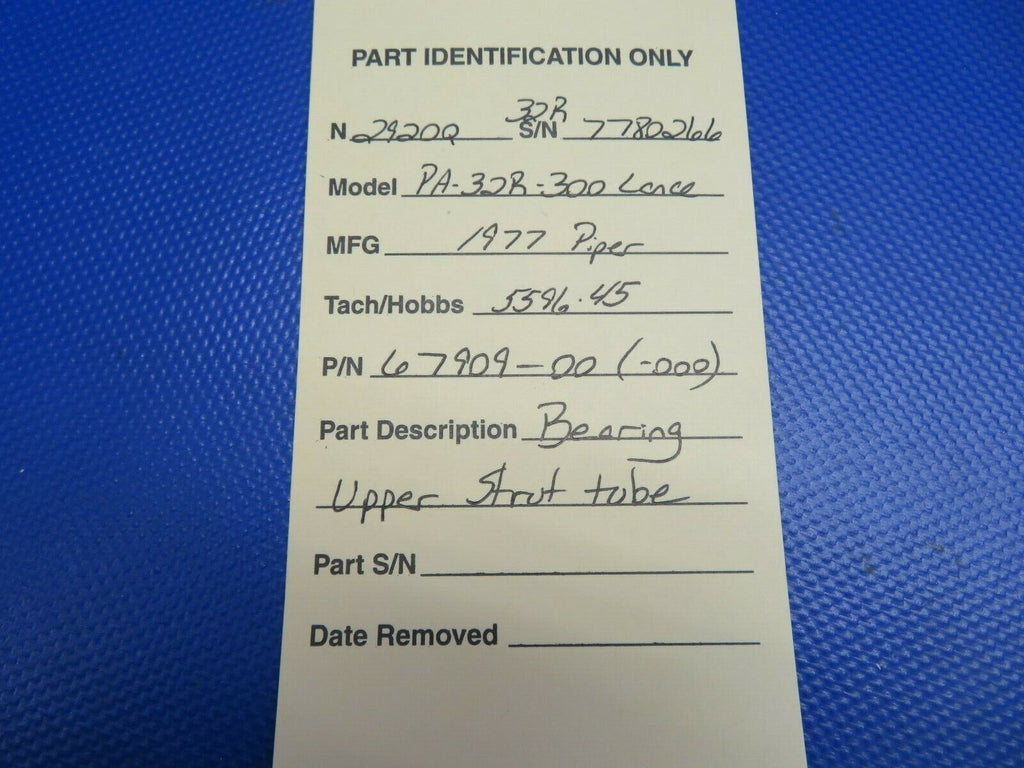 PART IDENTIFICATION ONLY
N 2920Q S/N 32R 7780266
Model PA-32R-300 Lance
MFG 1977 Piper
Tach/Hobbs 5596.45
P/N 67909-00 (-000)
Part Description Bearing
Upper Strut tube
Part S/N
Date Removed